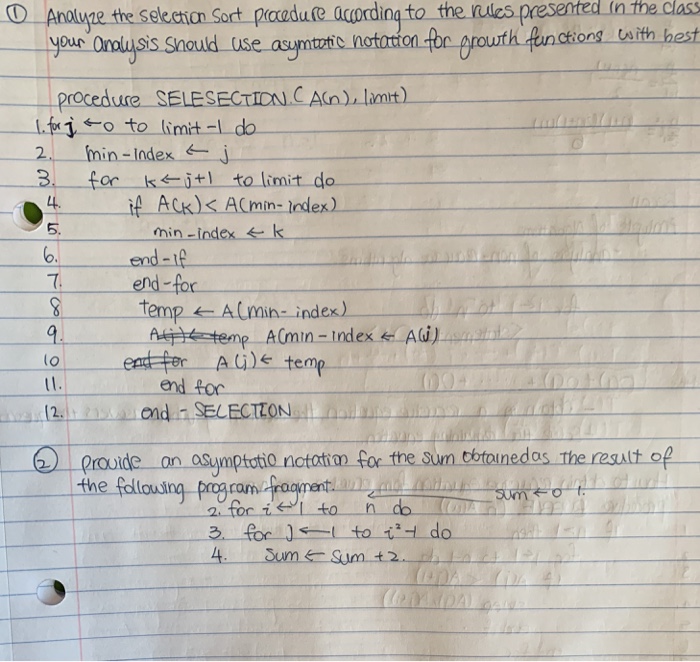 ① Analyze the selection sort procedure according to the rules presented in the class
your analysis should use asymtotic notation for growth functions with best
procedure SELESECTION (A(n), limit)
1. for j ← 0 to limit -1 do
2. min-Index ← j
3. for k ← j+1 to limit do
4. if A(K) < A(min-index)
5. min-index ← k
6. end-if
7. end-for
8 temp ← A(min-index)
9. A(j) ← temp A(min-index ← A(j)
10 end for A(j) ← temp
11. end for
12. end - SELECTION
② provide an asymptotic notation for the sum obtained as the result of
the following program fragment. sum ← 0 1.
2. for i ← 1 to n do
3. for J ← 1 to i²-1 do
4. Sum ← Sum +2.